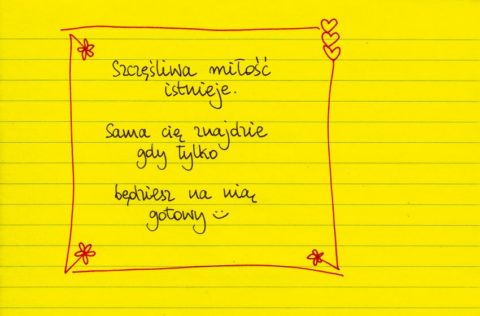 Szczęśliwa miłość
istnieje.
Sama cię znajdzie
gdy tylko
będziesz na nią
gotowy